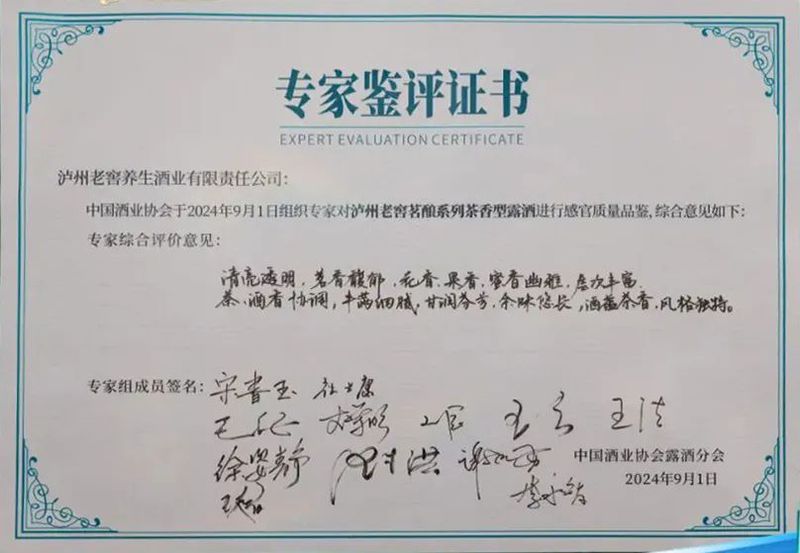 专家鉴评证书
EXPERT EVALUATION CERTIFICATE
泸州老窖养生酒业有限责任公司：
中国酒业协会于2024年9月1日组织专家对泸州老窖茗酿系列茶香型露酒进行感官质量品鉴，综合意见如下：
专家综合评价意见：
清亮透明，茗香馥郁，花香、果香、蜜香幽雅，层次丰富，
茶、酒香协调，丰满细腻，甘润芬芳，余味悠长，酒蕴茶香，风格独特。
专家组成员签名：宋书玉
徐姿静
中国酒业协会露酒分会
2024年9月1日